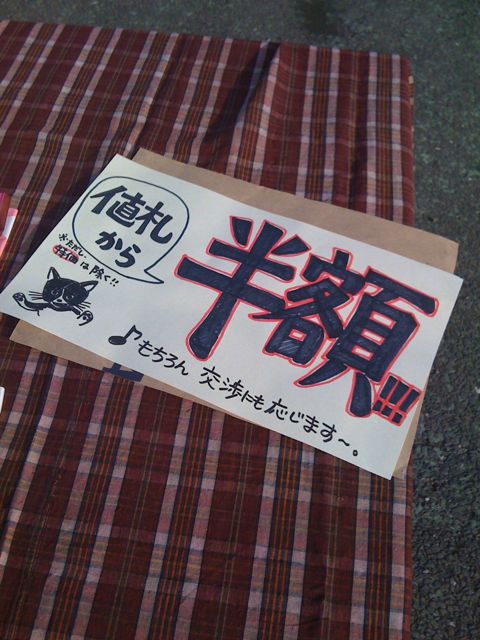 値札
から
※ただし
特価は除く!!
半額!!!
♪もちろん 交渉にも応じます〜。